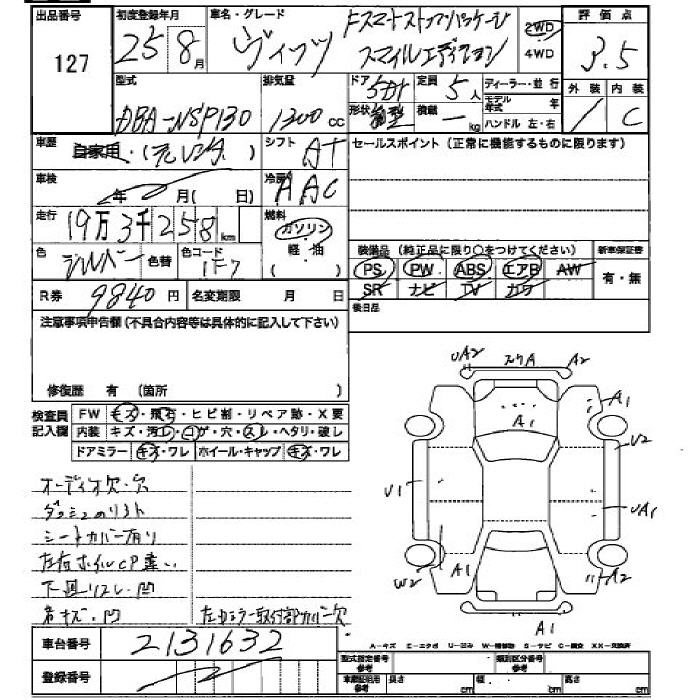 出品番号 初度登録年月 車名・グレード 評価点
127 25 8月 ヴィッツ F スマートストップパッケージ 2WD 3.5
スマイルエディション 4WD
型式 排気量 ドア 5D 定員 5人 ディーラー・並行 外装 内装
DBA-NSP130 1300cc 形状 箱型 積載 ー kg モデル年式 年 / C
ハンドル 左・右
車歴 自家用・(元レンタ) シフト AT セールスポイント(正常に機能するものに限ります)
車検 年 月( 日) 冷房 AAC
走行 19万3千258km 燃料 ガソリン
軽油
色 シルバー 色替 色コード 1F7 装備品(純正品に限り○をつけてください) 新車保証書
PS PW ABS エアB AW 有・無
R券 9840円 名変期限 月 日 SR ナビ TV カワ
注意事項申告欄(不具合内容等は具体的に記入して下さい) 後日品
修復歴 有 (箇所 )
検査員記入欄 FW キズ・飛石・ヒビ割・リペア跡・X要
内装 キズ・汚レ・コゲ・穴・スレ・ヘタリ・破レ
ドアミラー キズ・ワレ ホイール・キャップ キズ・ワレ
オーディオ欠・穴
シートカバー有り
左右ホイルCP違い
下廻りスレ・凹
キズ・凹 左ミラー取付部カバー欠
UA2 A A2
A1 A1
U2
U1 UA1
W2 A1 A2
A1
車台番号 2131632
登録番号
A－キズ E－エクボ U－凹ミ W－補修跡 S－サビ C－腐食 XX－交換済
型式指定番号参考 類別区分番号参考
車庫証明用参考 長さ cm 幅 cm 高さ cm